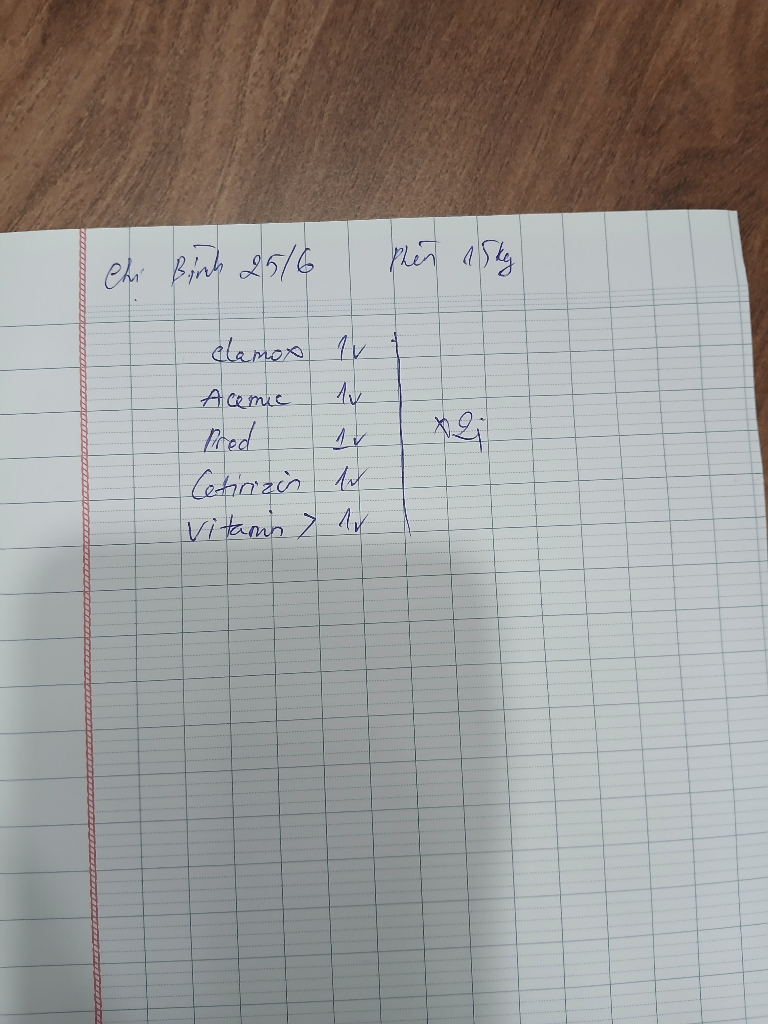 Chị Bình 25/6 15kg
Clamox 1v
Acemuc 1v
Pred 1v
Cetirizin 1v x2j
Vitamin > 1v